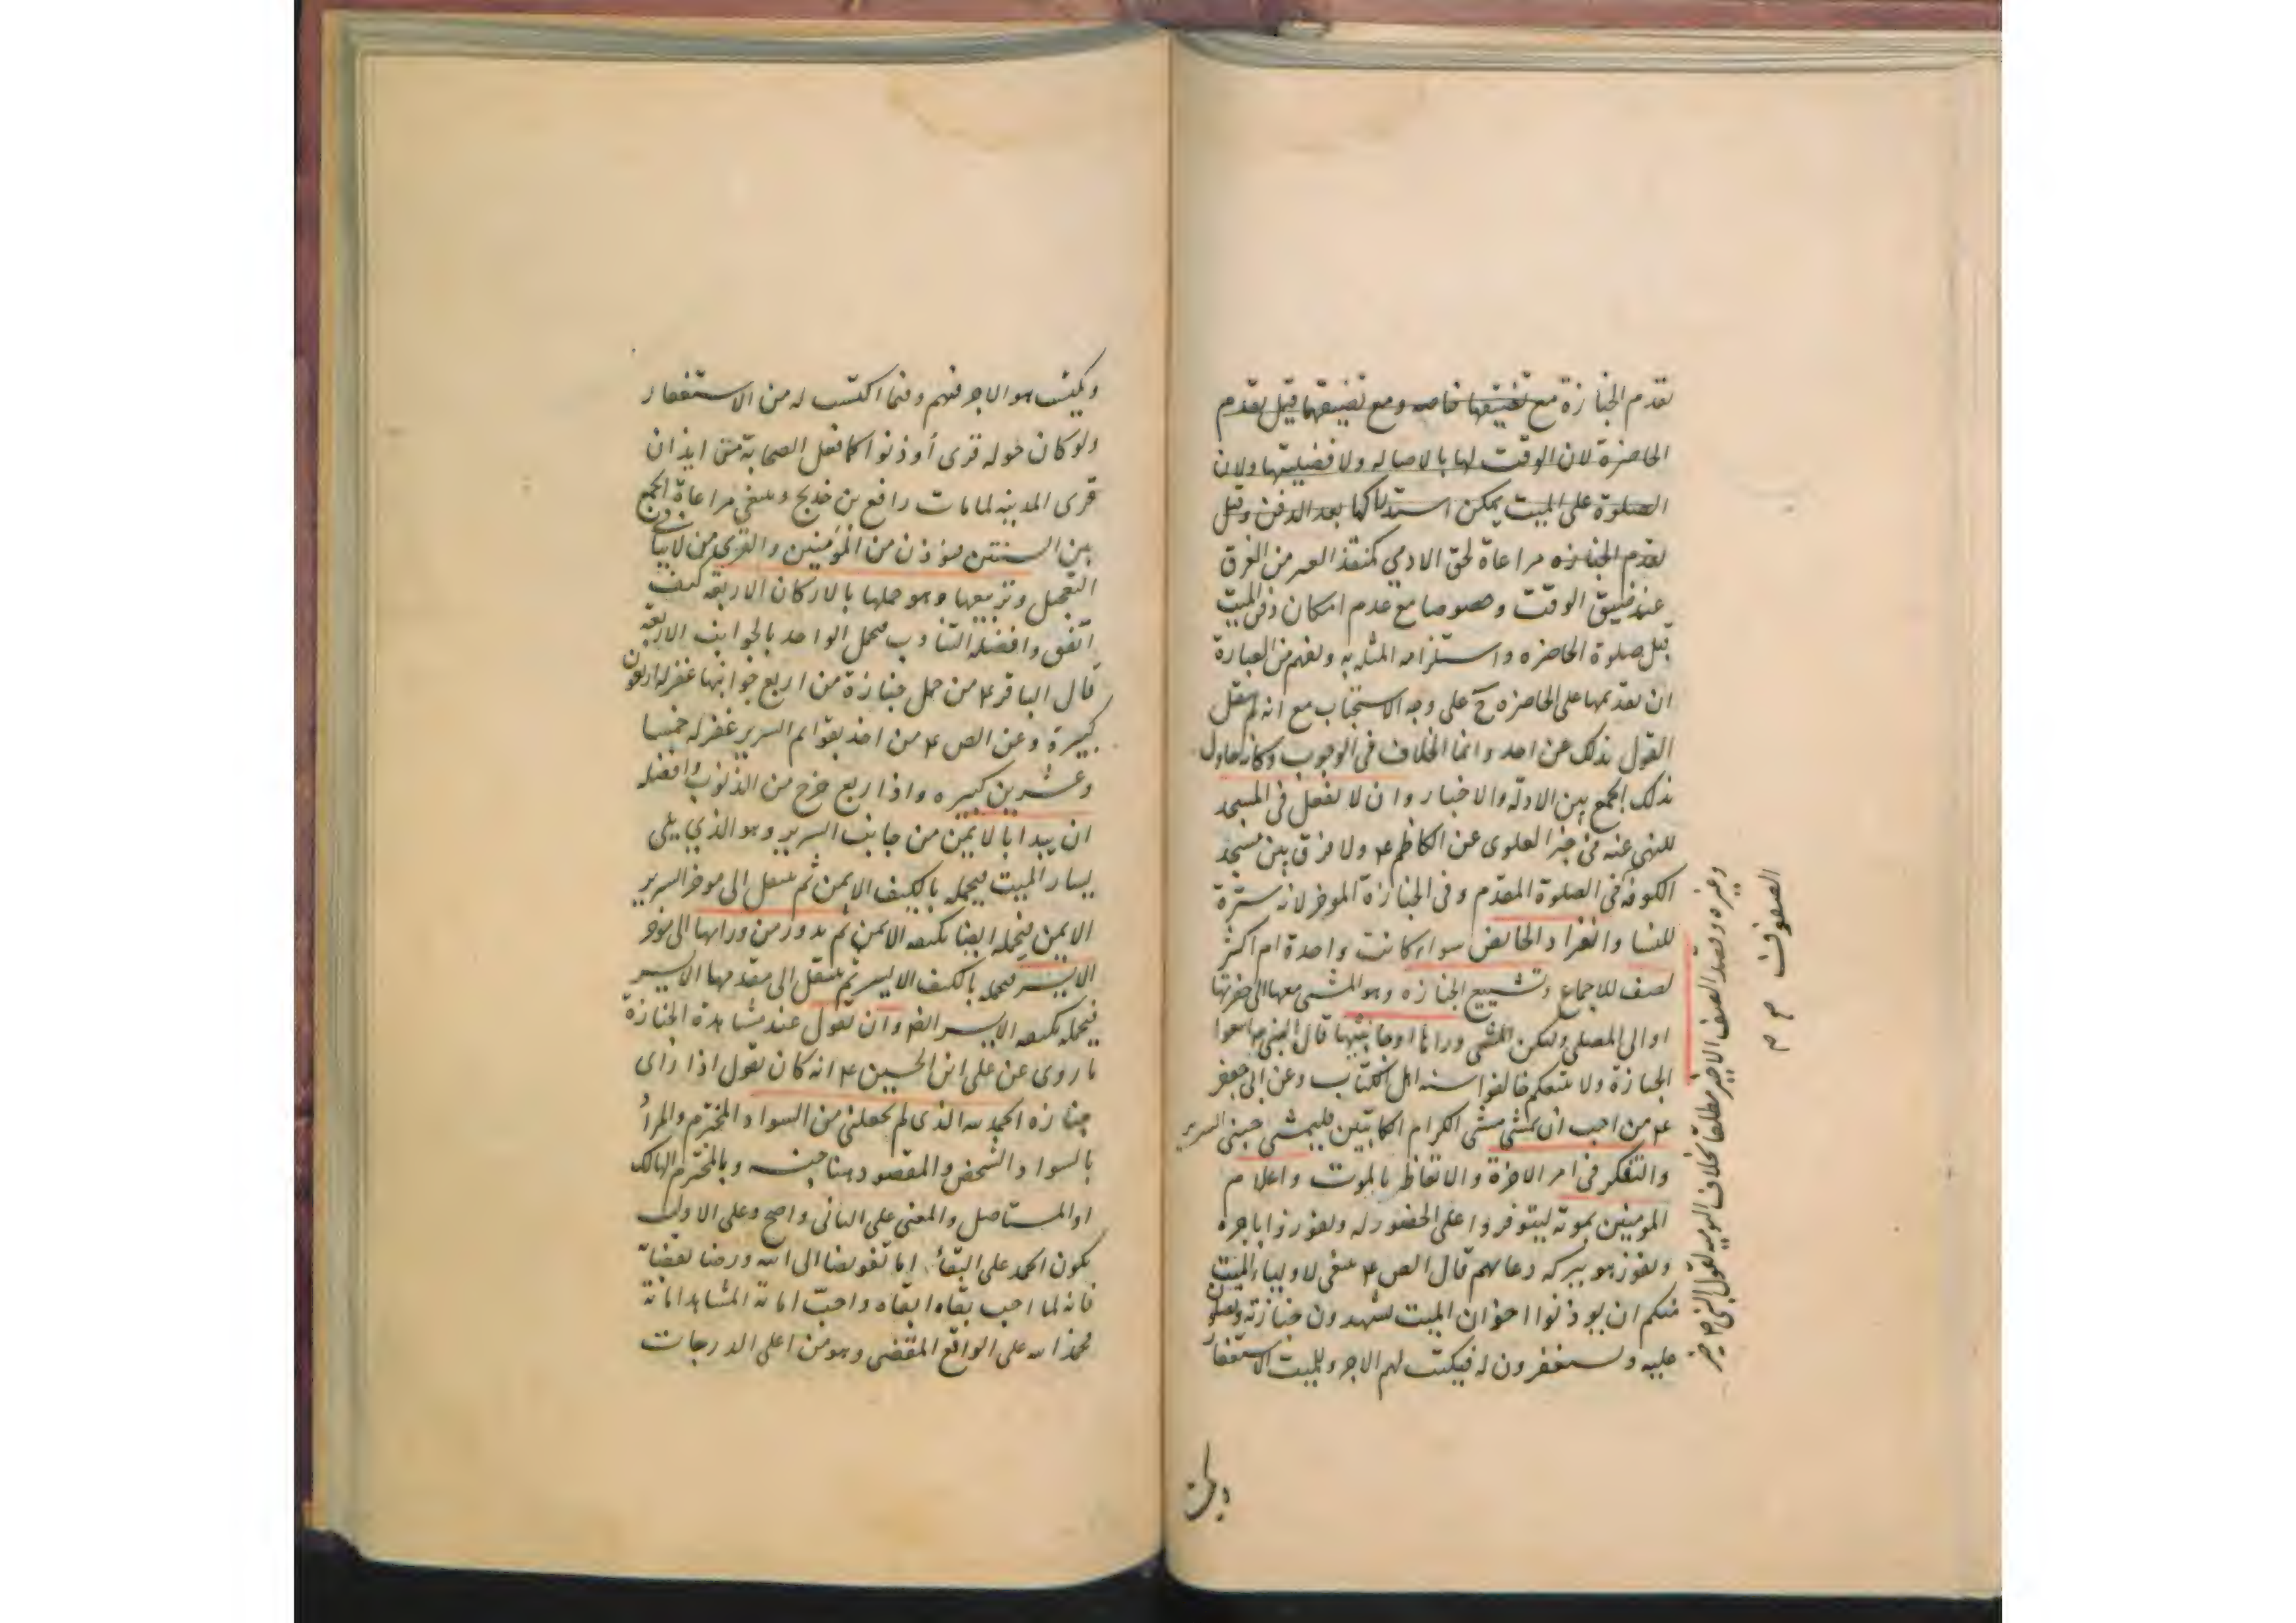 تقدم الجنازة مع تضيقها خاصه ومع تضيقهما قيل بقدم
الحاضرة لان الوقت لها بالاصاله ولافضليتها ولان
الصلوة على الميت يمكن استدراكها بعد الدفن وقيل
تقدم الجنازه مراعاة لحق الادمي كمنقذ الغير من الغرق
عند ضيق الوقت وخصوصا مع عدم امكان دفن الميت
قبل صلوة الحاضره واستلزامه المثله به ويفهم من العبارة
ان تقديمها على الحاضره ح على وجه الاستحباب مع انه لم ينقل
القول بذلك عن احد وانما الخلاف في الوجوب وكانه حاول
بذلك الجمع بين الادلة والاخبار وان لا تفعل في المسجد
للنهي عنه في خبر العلوى عن الكاظم ع ولا فرق بين مسجد
الكوفه في الصلوة المقدم وفى الجنازة الموخر لانه سترة
للنسا وانفراد الحائض سواء كانت واحدة ام اكثر
لصف للاجماع وتشييع الجنازه وهو المشى معها الى حفرتها
او الى المصلى وليكن المشى وراءها او جانبيها قال النبي ص اتبعوا
الجنازة ولا تتبعكم خالفوا سنه اهل الكتاب وعن ابى جعفر
ع من احب ان يمشى مشى الكرام الكاتبين فليمشى جنبي السرير
والتفكر في امر الاخرة والاتعاظ بالموت واعلام
المومنين بموته ليتوفروا على الحضور له ويفوزوا باجره
ويفوز هو ببركه دعائهم قال الص ع ينبغى لاولياء الميت
منكم ان يوذنوا اخوان الميت يشهدون جنازته ويصلون
عليه ويستغفرون له فيكتب لهم الاجر وللميت الاستغفار
وغيره وقصد الصف الاخير مطلقا بخلاف اليوميه لقول النبي ص خير
الصفوف
ويكتسب هو الاجر فيهم وفيما اكتسب له من الاستغفار
ولو كان حوله قرى أوذنوا كما فعل الصحابة من ايذان
قرى المدينه لما مات رافع بن خديج وينبغي مراعاة الجمع
بين السنتين فيؤذن من المؤمنين والقرى من لا ينافي
التعجيل وتربيعها وهو حملها بالاركان الاربعه كيف
اتفق وافضله التناوب فيحمل الواحد بالجوانب الاربعه
قال الباقر ع من حمل جنازة من اربع جوانبها غفر له اربعون
كبيرة وعن الص ع من اخذ بقوايم السرير غفر له خمسا
وعشرين كبيره واذا ربع خرج من الذنوب وافضله
ان يبدا بالايمن من جانب السرير وهو الذي يلى
يسار الميت فيحمله بالكتف الايمن ثم ينتقل الى موخر السرير
الايمن فيحمله ايضا بكتفه الايمن ثم يدور من ورائها الى موخر
الايسر فيحمله بالكتف الايسر ثم ينتقل الى مقدمها الايسر
فيحمله بكتفه الايسر ايضا وان تقول عند مشاهدة الجنازة
ما روى عن على ابن الحسين ع انه كان يقول اذا راى
جنازه الحمد لله الذى لم يجعلنى من السواد المخترم والمراد
بالسواد الشخص والمقصود هنا جنسه وبالمخترم الهالك
او المستاصل والمعنى على الثانى واضح وعلى الاول
يكون الحمد على البقاء اما تفويضا الى الله ورضا بقضائه
فانه لما احب بقاه ابقاه واحب اماتة المشاهد اماته
فحمد الله على الواقع المقضى وهو من اعلى الدرجات